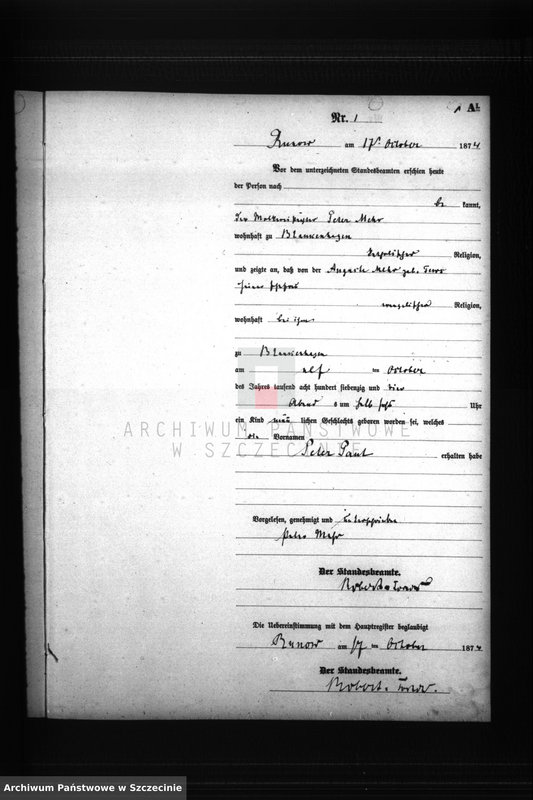 A1.
Nr. 1
Runow am 17t October 1874
Vor dem unterzeichneten Standesbeamten erschien heute
der Person nach
be kannt,
der Peter Mehr
wohnhaft zu Blankenhagen
katholischer Religion,
und zeigte an, daß von der Auguste Mehr geb.
seiner Ehefrau
evangelischer Religion,
wohnhaft bei ihm
zu Blankenhagen
am elf ten October
des Jahres tausend acht hundert siebenzig und vier
Abend s um halb sechs Uhr
ein Kind män lichen Geschlechts geboren worden sei, welches
die Vornamen
Peter Paul erhalten habe
ARCHIWUM PAŃSTWOWE
W SZCZECINIE
Vorgelesen, genehmigt und unterschrieben
Peter Mehr
Der Standesbeamte.
Robert
Die Uebereinstimmung mit dem Hauptregister beglaubigt
Runow am 17 ten October 1874
Der Standesbeamte.
Robert
Archiwum Państwowe w Szczecinie